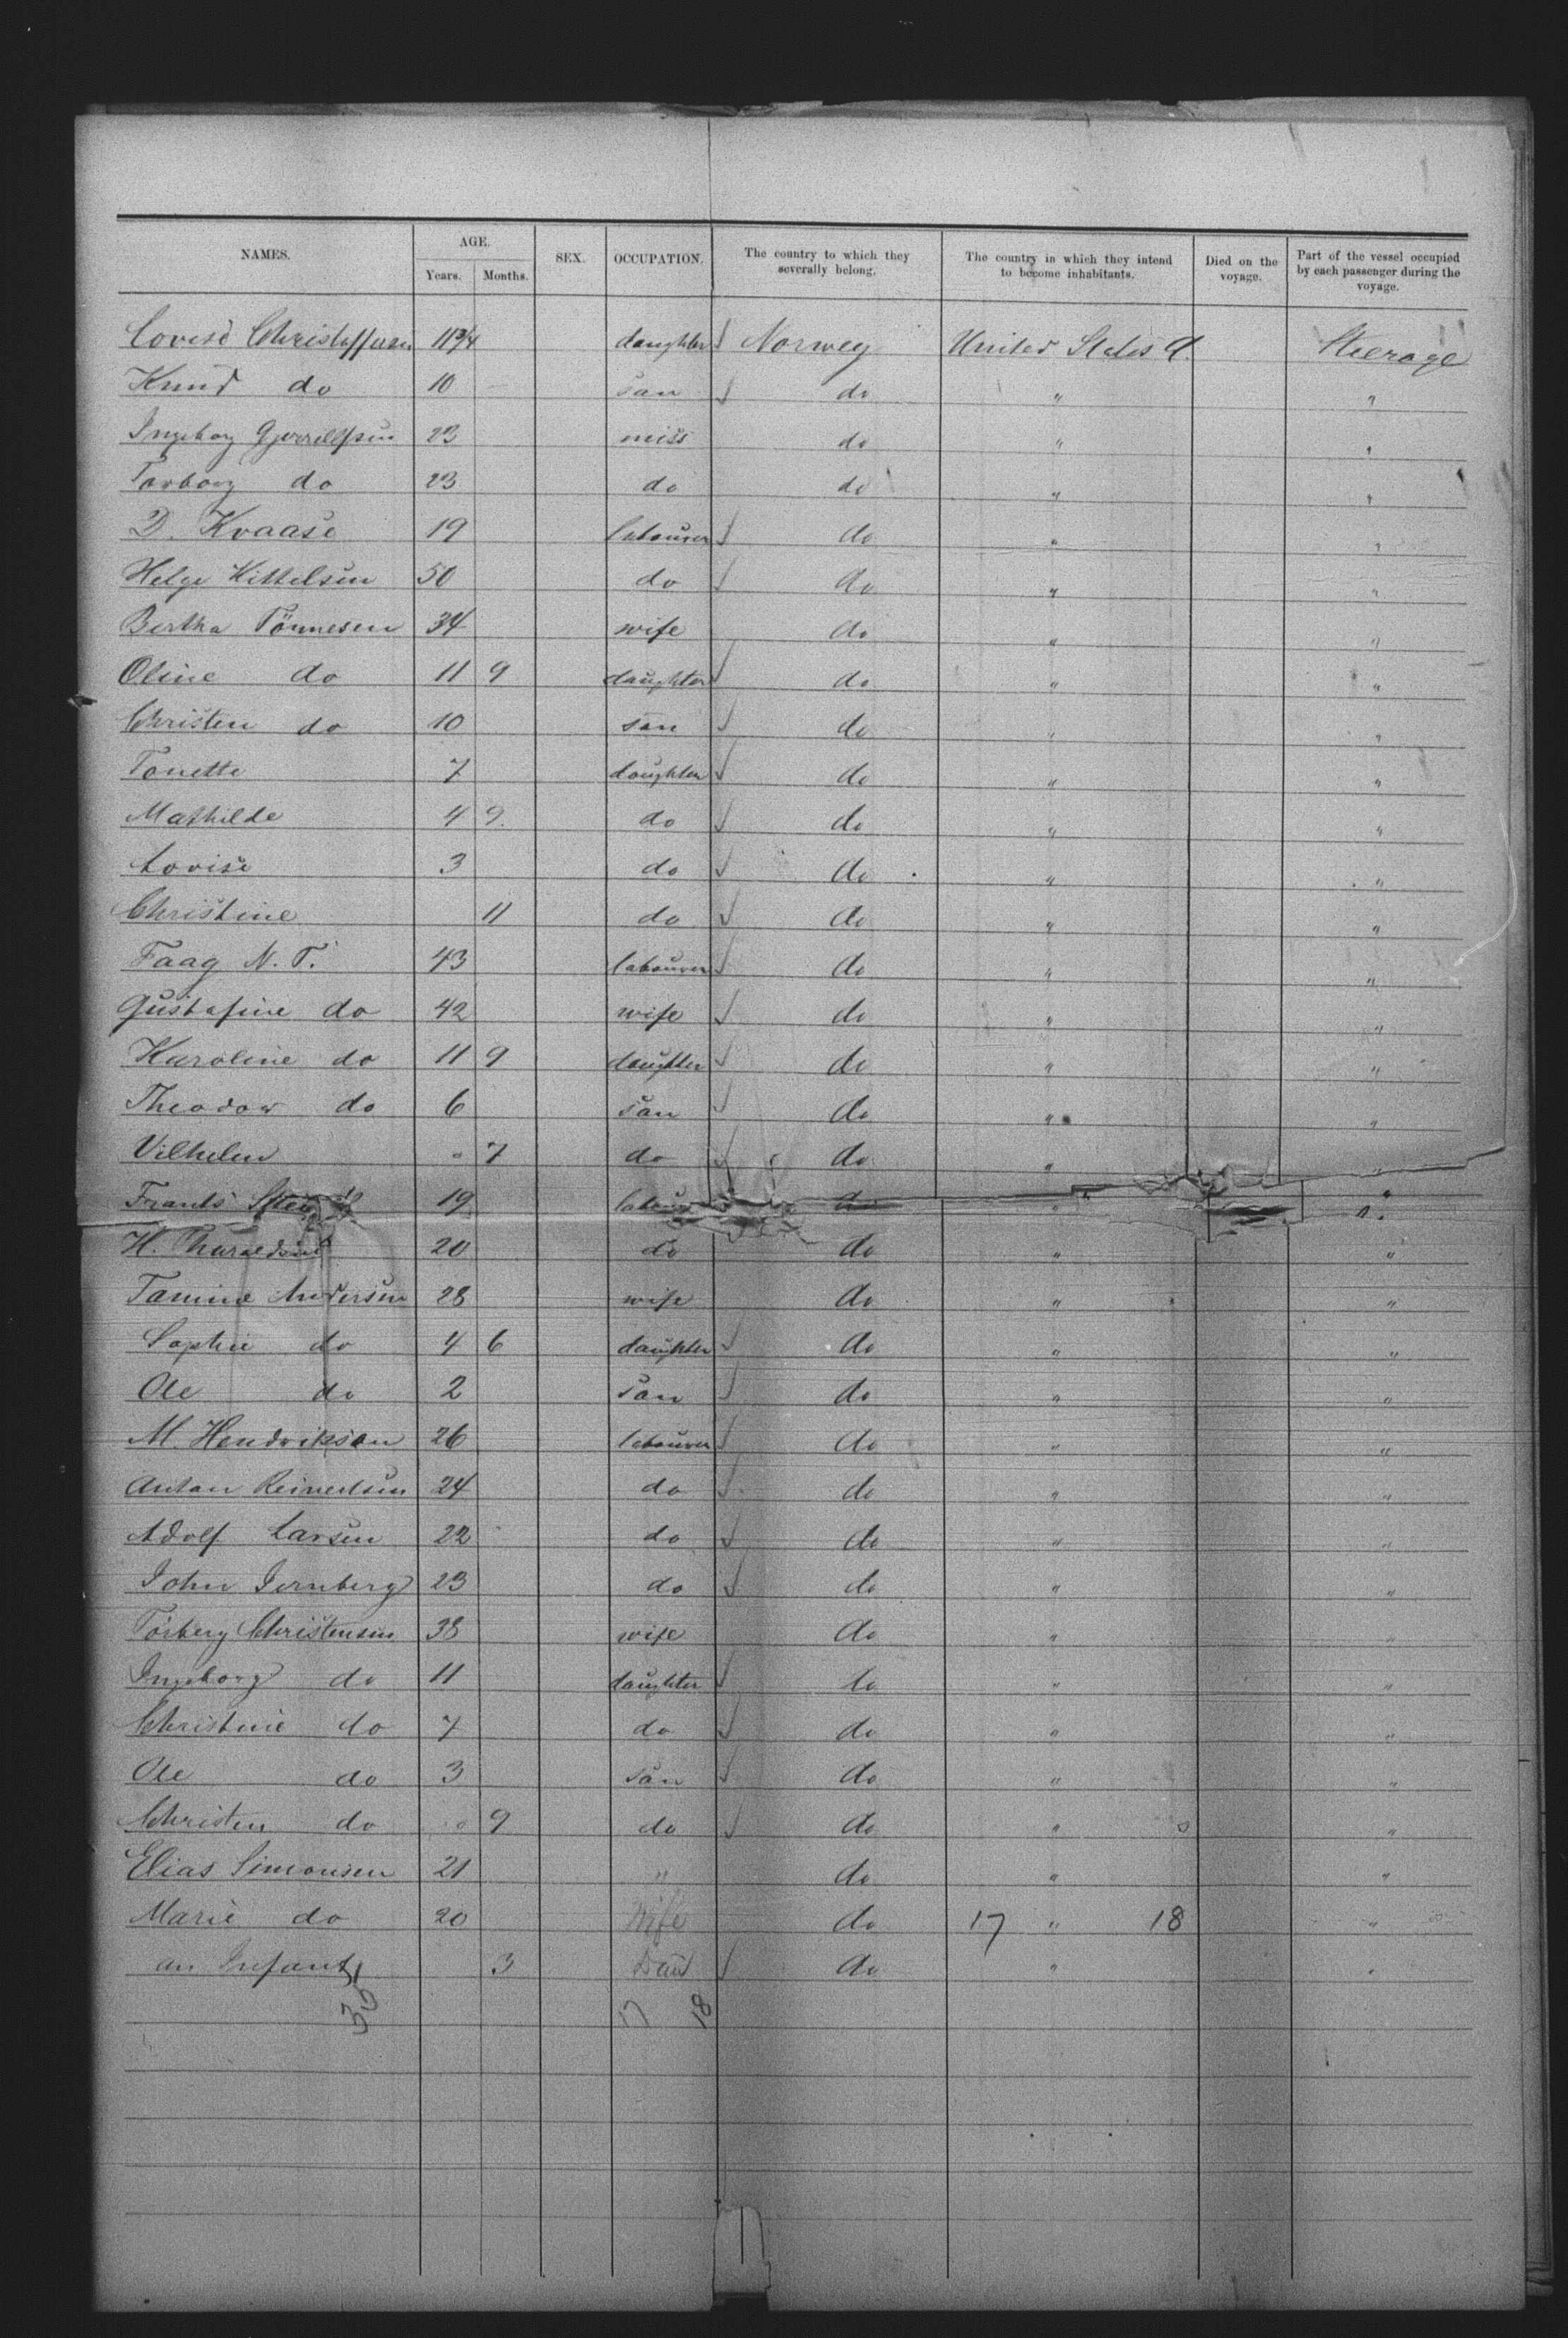 NAMES. AGE. SEX. OCCUPATION. The country to which they severally belong. The country in which they intend to become inhabitants. Died on the voyage. Part of the vessel occupied by each passenger during the voyage.
Years. Months.
Lovise Christoffersen 11 3/4 daughter Norwey United States A. Steerage
Knud do 10 son do " "
Ingeborg 23 miss do " "
Torborg do 23 do do " "
D. Kraase 19 labourer do " "
Helge Kittelsen 50 do do " "
Bertha Tönnesen 34 wife do " "
Oline do 11 9 daughter do " "
Christen do 10 son do " "
Tonette 7 daughter do " "
Mathilde 4 9. do do " "
Lovise 3 do do " "
Christine 11 do do " "
Faag N. T. 43 labourer do " "
Gustafine do 42 wife do " "
Karoline do 11 9 daughter do " "
Theodor do 6 son do " "
Vilhelm " 7 do do " "
Frants 19 do " "
H. 20 do do " "
Tamine Andersen 28 wife do " "
Sophie do 4 6 daughter do " "
Ole do 2 son do " "
M. Hendrikson 26 labourer do " "
Anton Reinertsen 24 do do " "
Adolf Larsen 22 do do " "
John Jernberg 23 do do " "
Torberg Christensen 38 wife do " "
Ingeborg do 11 daughter do " "
Christine do 7 do do " "
Ole do 3 son do " "
Christen do 0 9 do do " "
Elias Simonsen 21 " do " "
Marie do 20 Wife do 17 " 18 "
an Infant 3 Dau do " "
35 17 18